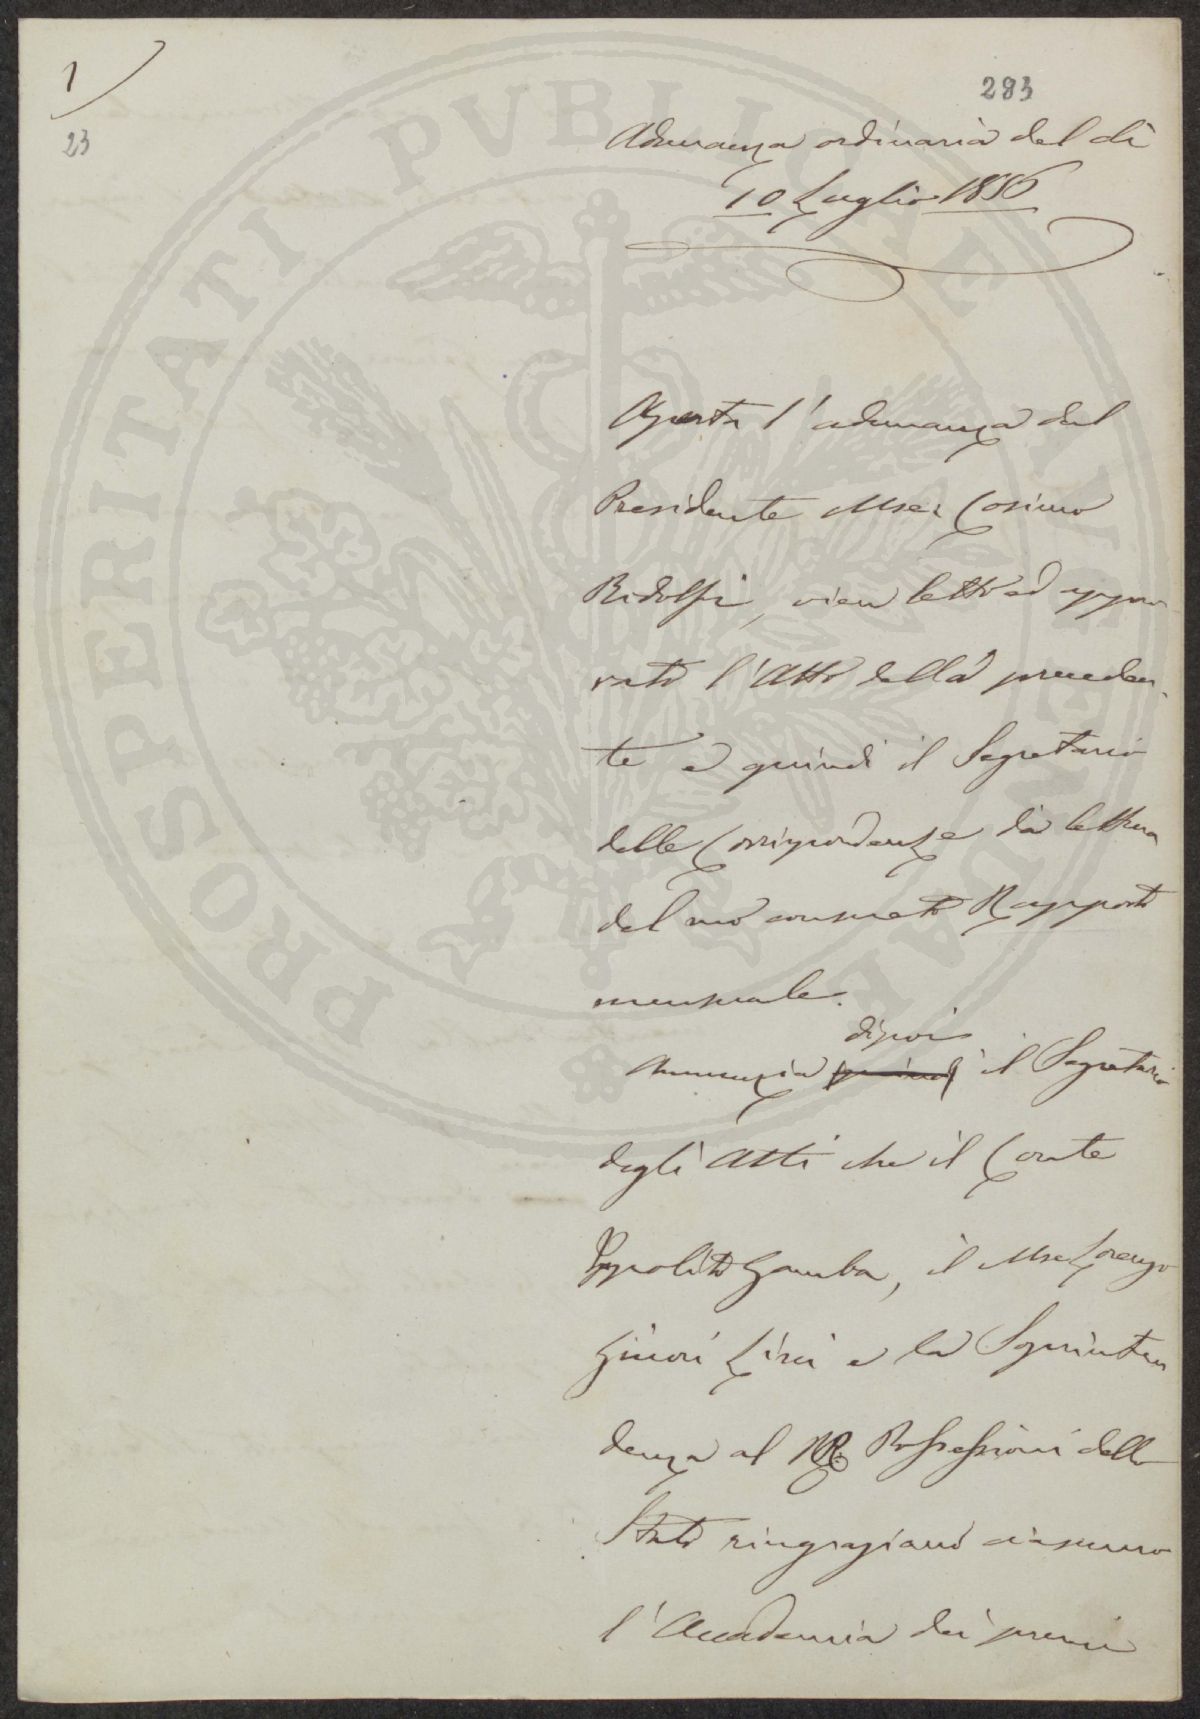 1)
23
283
Adunanza ordinaria del dì
10 Luglio 1856
Aperta l'adunanza dal
Presidente Mse. Cosimo
Ridolfi, vien letto ed appro-
vato l'Atto della preceden-
te e quindi il Segretario
delle Corrispondenze dà lettura
del suo consueto Rapporto
mensuale.
dipoi
Annunzia quindi il Segretario
degli Atti che il Conte
Ippolito Gamba, il Mse Lorenzo
Ginori Lisci e la Soprinten
denza al RR. Possessioni dello
Stato ringraziano ciascuno
l'Accademia dei premi
PROSPERITATI PVBLICAE AVGENDAE